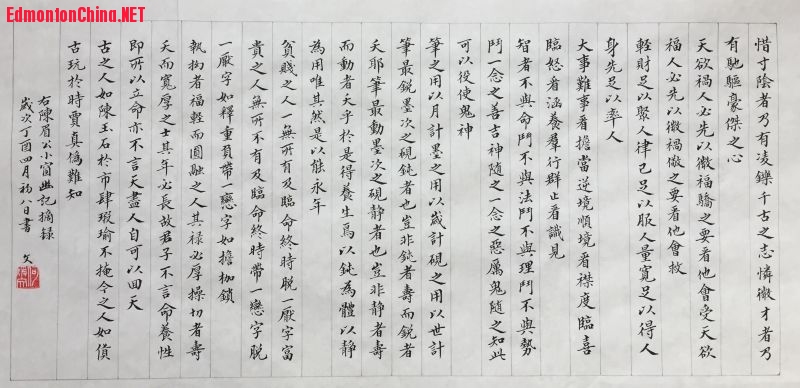 EdmontonChina.NET
惜寸陰者乃有凌鑠千古之志憐微才者乃
有馳驅豪傑之心
天欲禍人必先以微福驕之要看他會受天欲
福人必先以微禍儆之要看他會救
輕財足以聚人律己足以服人量寬足以得人
身先足以率人
大事難事看擔當逆境順境看襟度臨喜
臨怒看涵養羣行群止看識見
智者不與命鬥不與法鬥不與理鬥不與勢
鬥一念之善吉神隨之一念之惡厲鬼隨之知此
可以役使鬼神
筆之用以月計墨之用以歲計硯之用以世計
筆最銳墨次之硯鈍者也豈非鈍者壽而銳者
夭耶筆最動墨次之硯靜者也豈非靜者壽
而動者夭乎於是得養生焉以鈍為體以靜
為用唯其然是以能永年
貧賤之人一無所有及臨命終時脫一厭字富
貴之人無所不有及臨命終時帶一戀字脫
一厭字如釋重負帶一戀字如擔枷鎖
執拗者福輕而圓融之人其祿必厚操切者壽
夭而寬厚之士其年必長故君子不言命養性
即所以立命亦不言天盡人自可以回天
古之人如陳玉石於市肆瑕瑜不掩今之人如貨
古玩於時賈真偽難知
右陳眉公小窗幽記摘錄
歲次丁酉四月初八日書 文